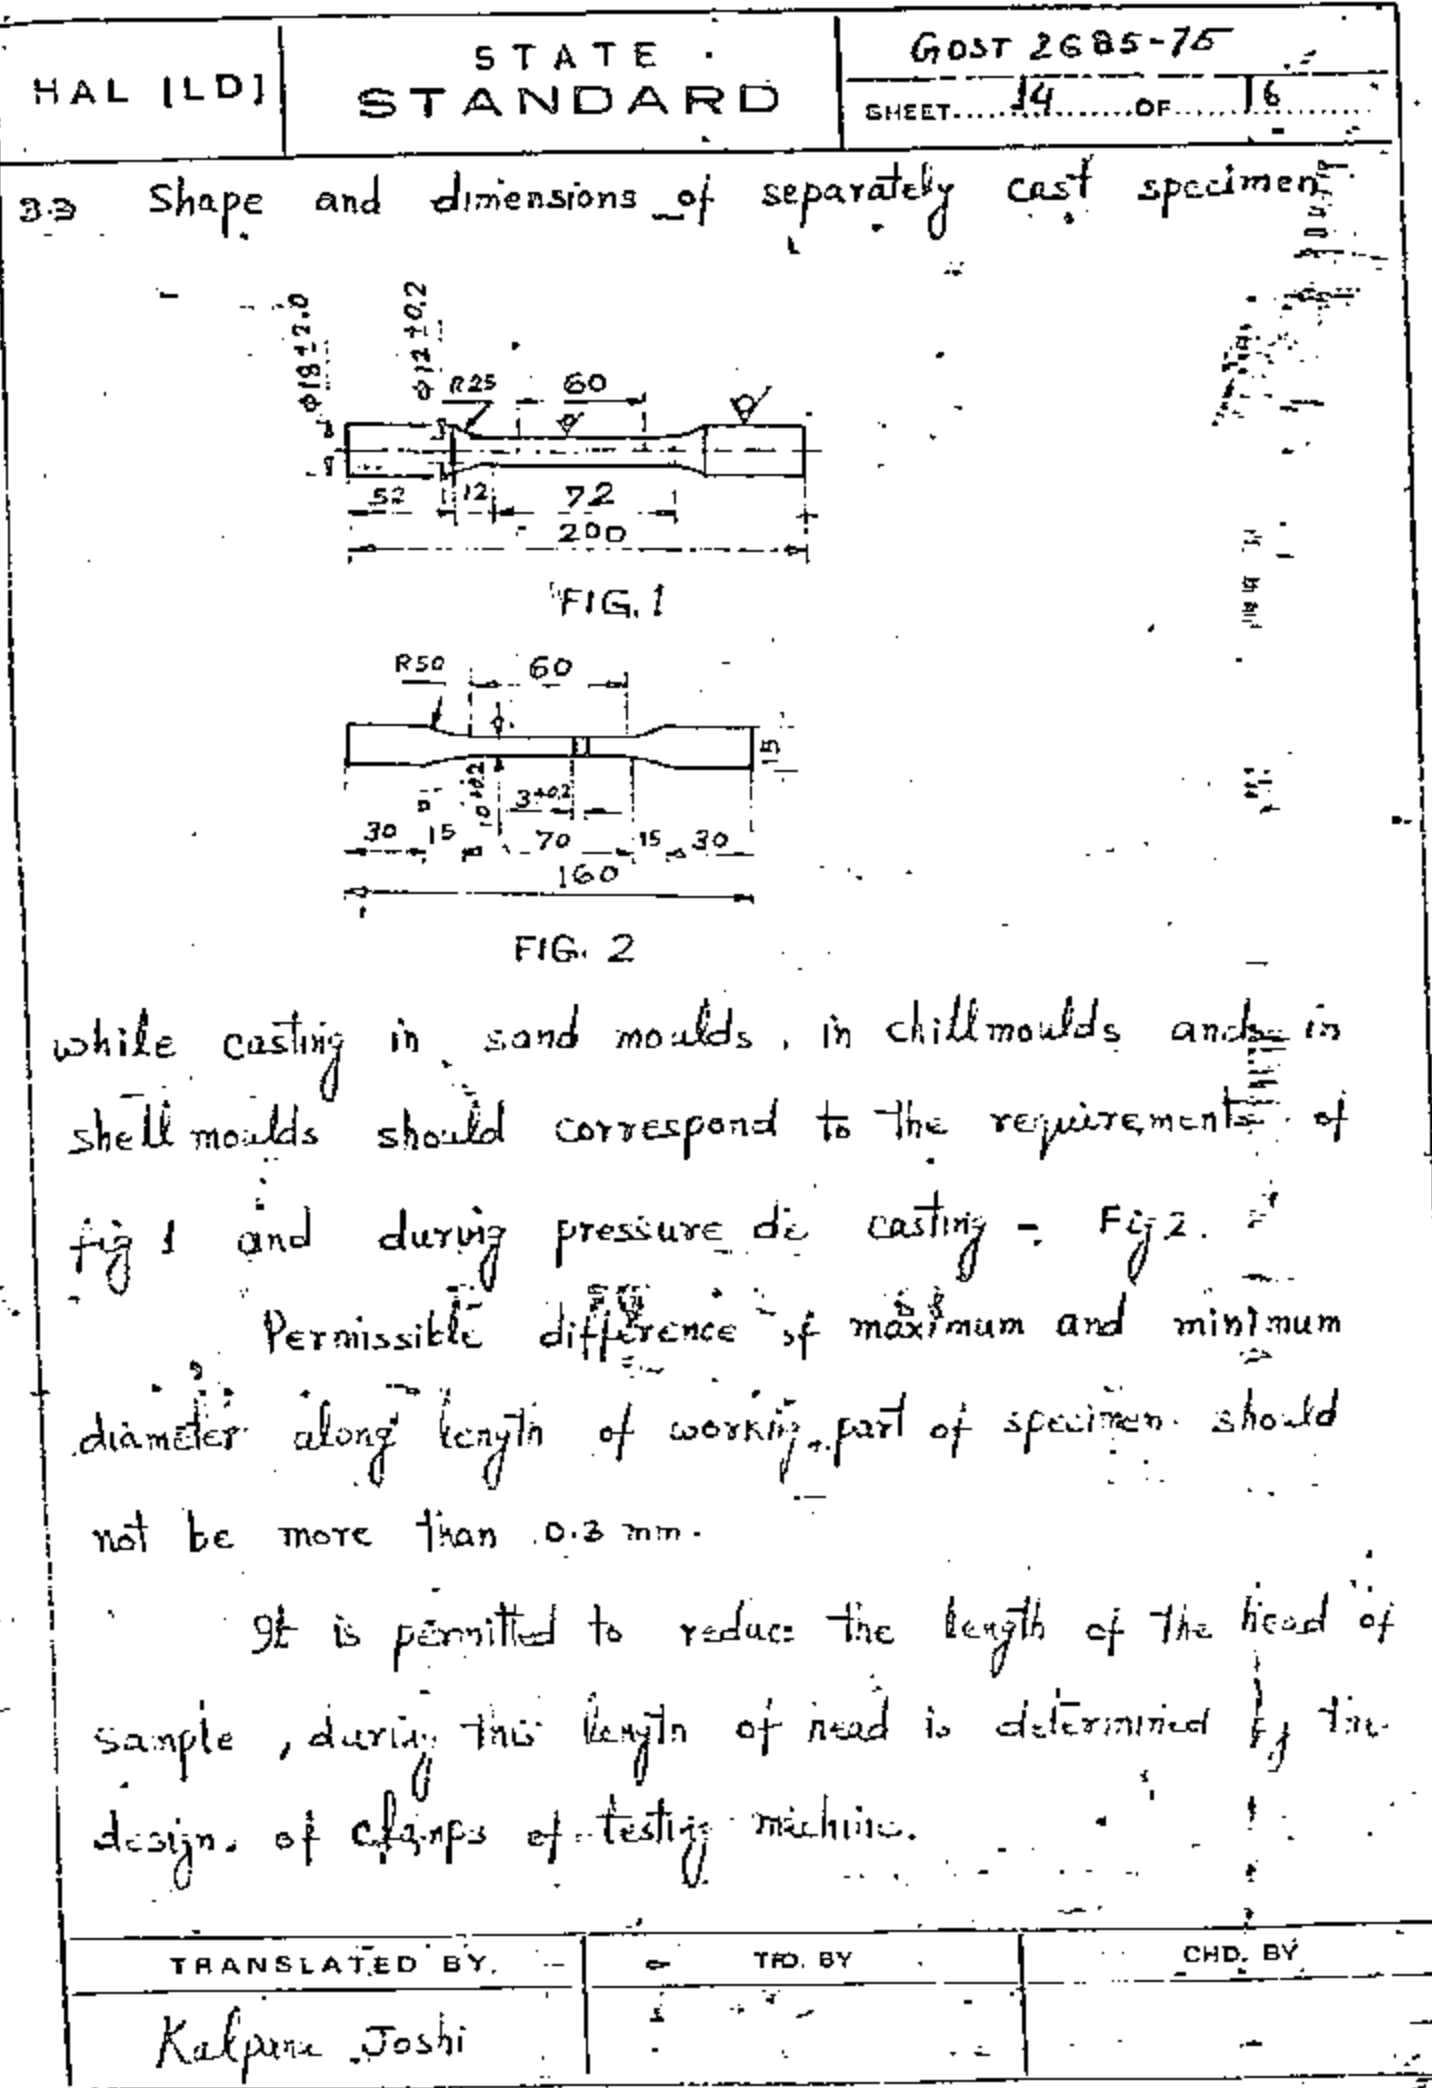 HAL [LD]
STATE
STANDARD
GOST 2685-75
SHEET....14........OF......16............
3.3 Shape and dimensions of separately cast specimen
Φ18±2.0
Φ12±0.2
R25
60
52
12
72
200
FIG. 1
R50
60
15
10+0.2
3+0.2
30
15
70
15
30
160
FIG. 2
while casting in sand moulds, in chill moulds and in
shell moulds should correspond to the requirements of
fig 1 and during pressure die casting - Fig 2.
Permissible difference of maximum and minimum
diameter along length of working part of specimen should
not be more than 0.3 mm.
It is permitted to reduce the length of the head of
sample, during this length of head is determined by the
design of clamps of testing machine.
TRANSLATED BY.
TPD. BY
CHD. BY
Kalpana Joshi